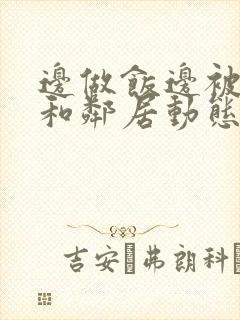 邊做飯邊被
和鄰居動態
吉安 弗朗科